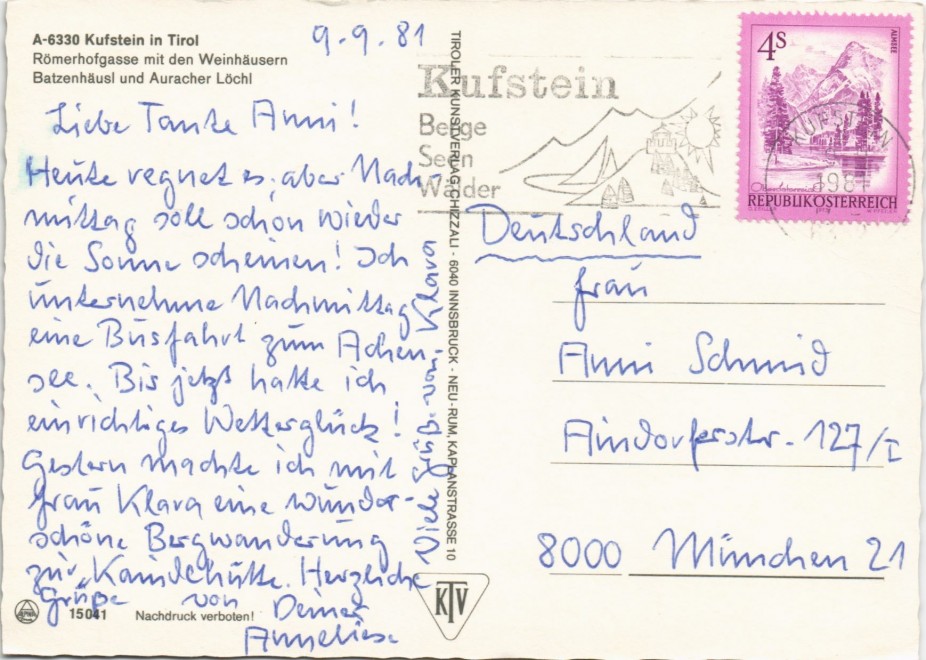 A-6330 Kufstein in Tirol
Römerhofgasse mit den Weinhäusern
Batzenhäusl und Auracher Löchl
9.9.81
Liebe Tante Anni!
Heute regnet es, aber Nach-
mittag soll schon wieder
die Sonne scheinen! Ich
unternehme Nachmittag
eine Busfahrt zum Achen-
see. Bis jetzt hatte ich
ein richtiges Wetterglück!
Gestern machte ich mit
Frau Klara eine wunder-
schöne Bergwanderung
zur "Kaindlhütte. Herzliche
Grüße von Deiner
Anneliese
Viele Grüße von Klara
15041 Nachdruck verboten!
TIROLER KUNSTVERLAG CHIZZALI - 6040 INNSBRUCK - NEU-RUM, KAPLANSTRASSE 10
KTV
Kufstein
Berge
Seen
Wälder
4S
ALMSEE
Oberösterreich
REPUBLIK ÖSTERREICH
KUFSTEIN
1981
Deutschland
Frau
Anni Schmid
Aindorferstr. 127/I
8000 München 21